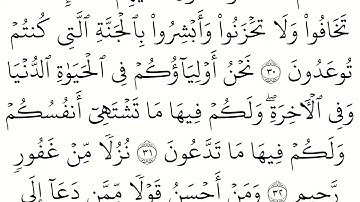 تَخَافُوا۟ وَلَا تَحْزَنُوا۟ وَأَبْشِرُوا۟ بِٱلْجَنَّةِ ٱلَّتِى كُنتُمْ
تُوعَدُونَ ٣٠ نَحْنُ أَوْلِيَآؤُكُمْ فِى ٱلْحَيَوٰةِ ٱلدُّنْيَا
وَفِى ٱلْـَٔاخِرَةِ ۖ وَلَكُمْ فِيهَا مَا تَشْتَهِىٓ أَنفُسُكُمْ
وَلَكُمْ فِيهَا مَا تَدَّعُونَ ٣١ نُزُلًا مِّنْ غَفُورٍ
رَّحِيمٍ ٣٢ وَمَنْ أَحْسَنُ قَوْلًا مِّمَّن دَعَآ إِلَى